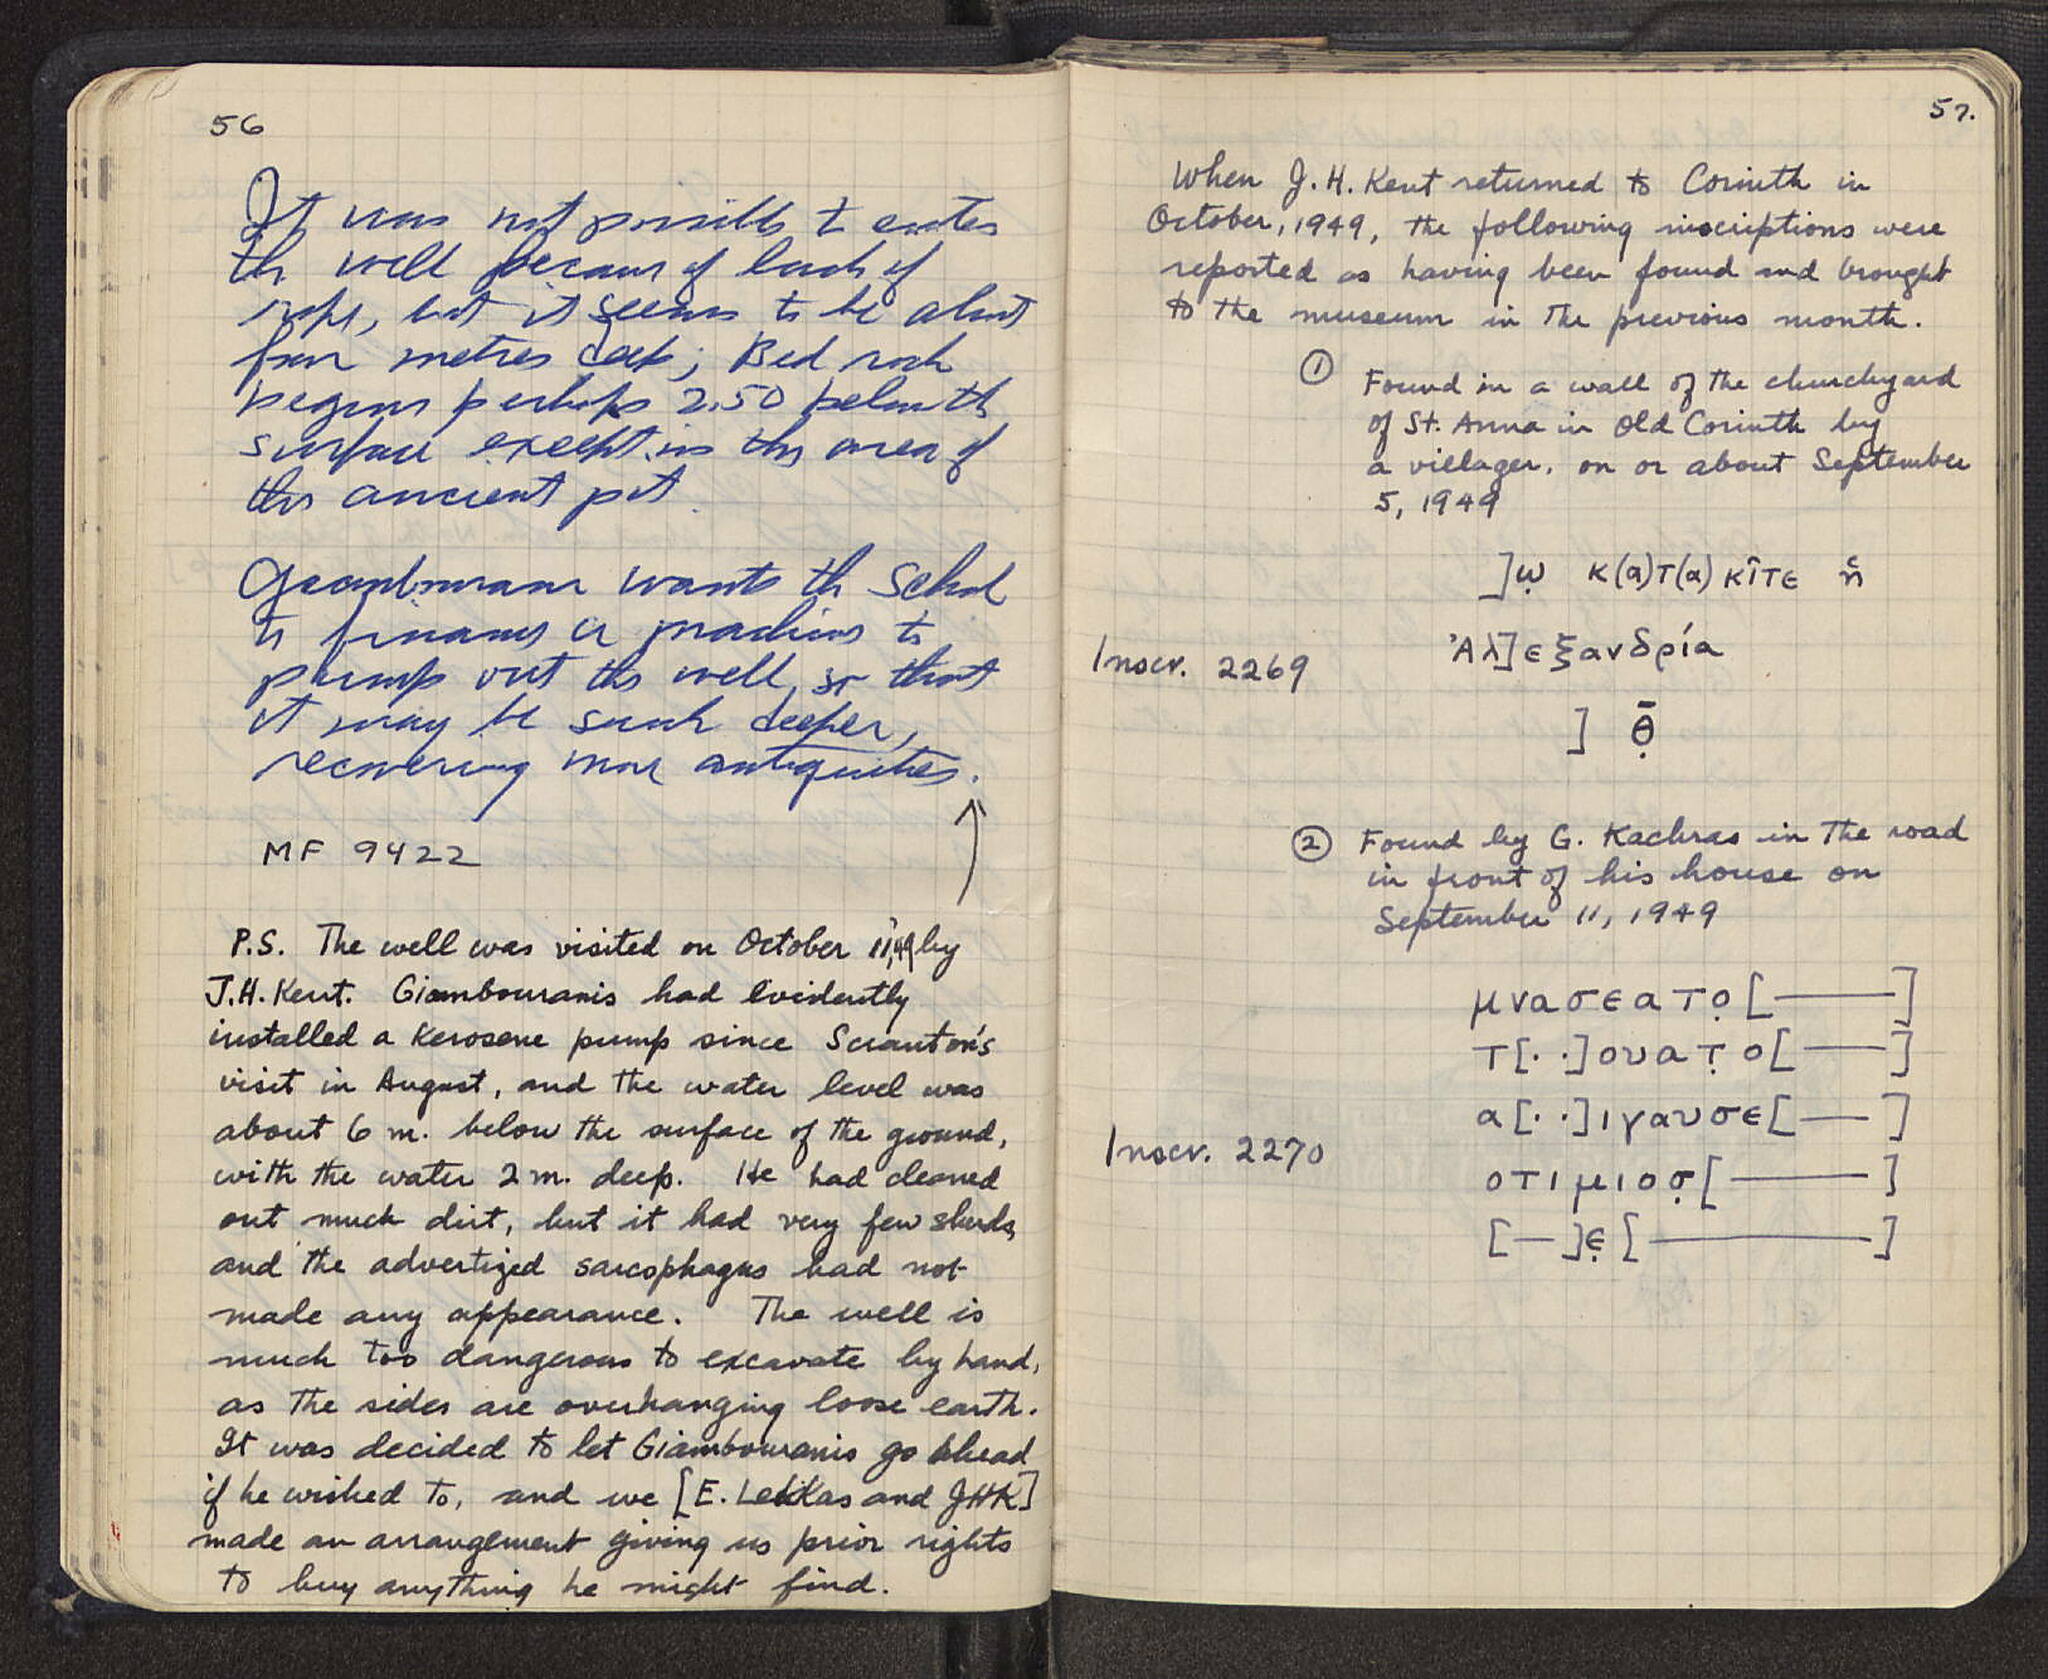 56
It was not possible to enter
the well because of lack of
rope, but it seems to be about
four metres deep; Bed rock
begins perhaps 2.50 below the
surface except in the area of
this ancient pit.
Giambourani wants the School
to finance a machine to
pump out the well, so that
it may be sunk deeper,
recovering more antiquities.
MF 9422
P.S. The well was visited on October 11, '49 by
J.H. Kent. Giambouranis had evidently
installed a kerosene pump since Scranton's
visit in August, and the water level was
about 6 m. below the surface of the ground,
with the water 2 m. deep. He had cleaned
out much dirt, but it had very few sherds,
and the advertized sarcophagus had not
made any appearance. The well is
much too dangerous to excavate by hand,
as the sides are overhanging loose earth.
It was decided to let Giambouranis go ahead
if he wished to, and we [E. Lekkas and JHK]
made an arrangement giving us prior rights
to buy anything he might find.
57.
When J. H. Kent returned to Corinth in
October, 1949, the following inscriptions were
reported as having been found and brought
to the museum in the previous month.
① Found in a wall of the churchyard
of St. Anna in Old Corinth by
a villager, on or about September
5, 1949
]ω̣ κ(α)τ(α)κῖτε
Inscr. 2269
Ἀλ]εξανδρία
] θ̣̄
② Found by G. Kachras in the road
in front of his house on
September 11, 1949
μνασεατο̣[——]
τ[..]ουατ̣ο[——]
α[..]ιγαυσε[—]
Inscr. 2270
οτιμιοσ̣[——]
[—]ε̣[———]